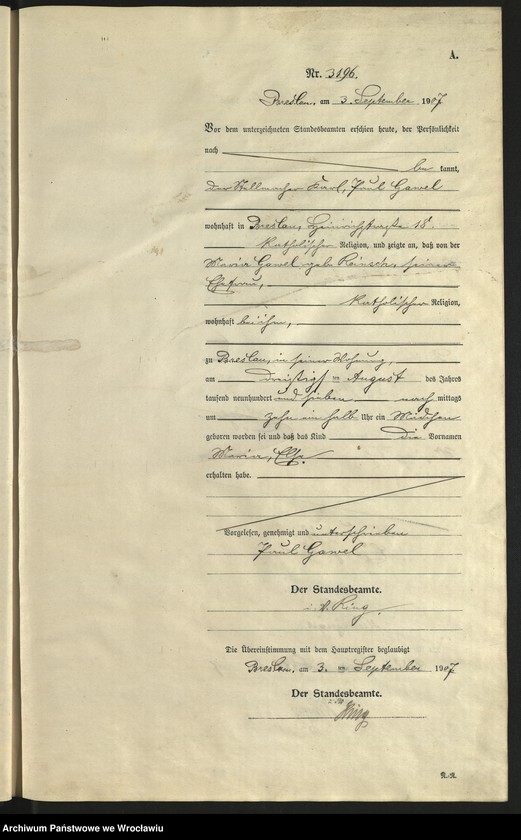 A.
Nr. 3196.
Breslau, am 3. September 1907
Vor dem unterzeichneten Standesbeamten erschien heute, der Persönlichkeit
nach
be kannt,
der Stellmacher Karl, Paul Gawel
wohnhaft in Breslau, Heinrichstraße 18
katholischer Religion, und zeigte an, daß von der
Maria Gawel geb. Reinsch, seiner
Ehefrau,
katholischer Religion,
wohnhaft bei ihm,
zu Breslau, in seiner Wohnung,
am dreißigsten August des Jahres
tausend neunhundert und sieben nach mittags
um zehn ein halb Uhr ein Mädchen
geboren worden sei und daß das Kind die Vornamen
Maria, Else
erhalten habe.
Vorgelesen, genehmigt und unterschrieben
Paul Gawel
Der Standesbeamte.
Die Übereinstimmung mit dem Hauptregister beglaubigt
Breslau, am 3. September 1907
Der Standesbeamte.
Archiwum Państwowe we Wrocławiu